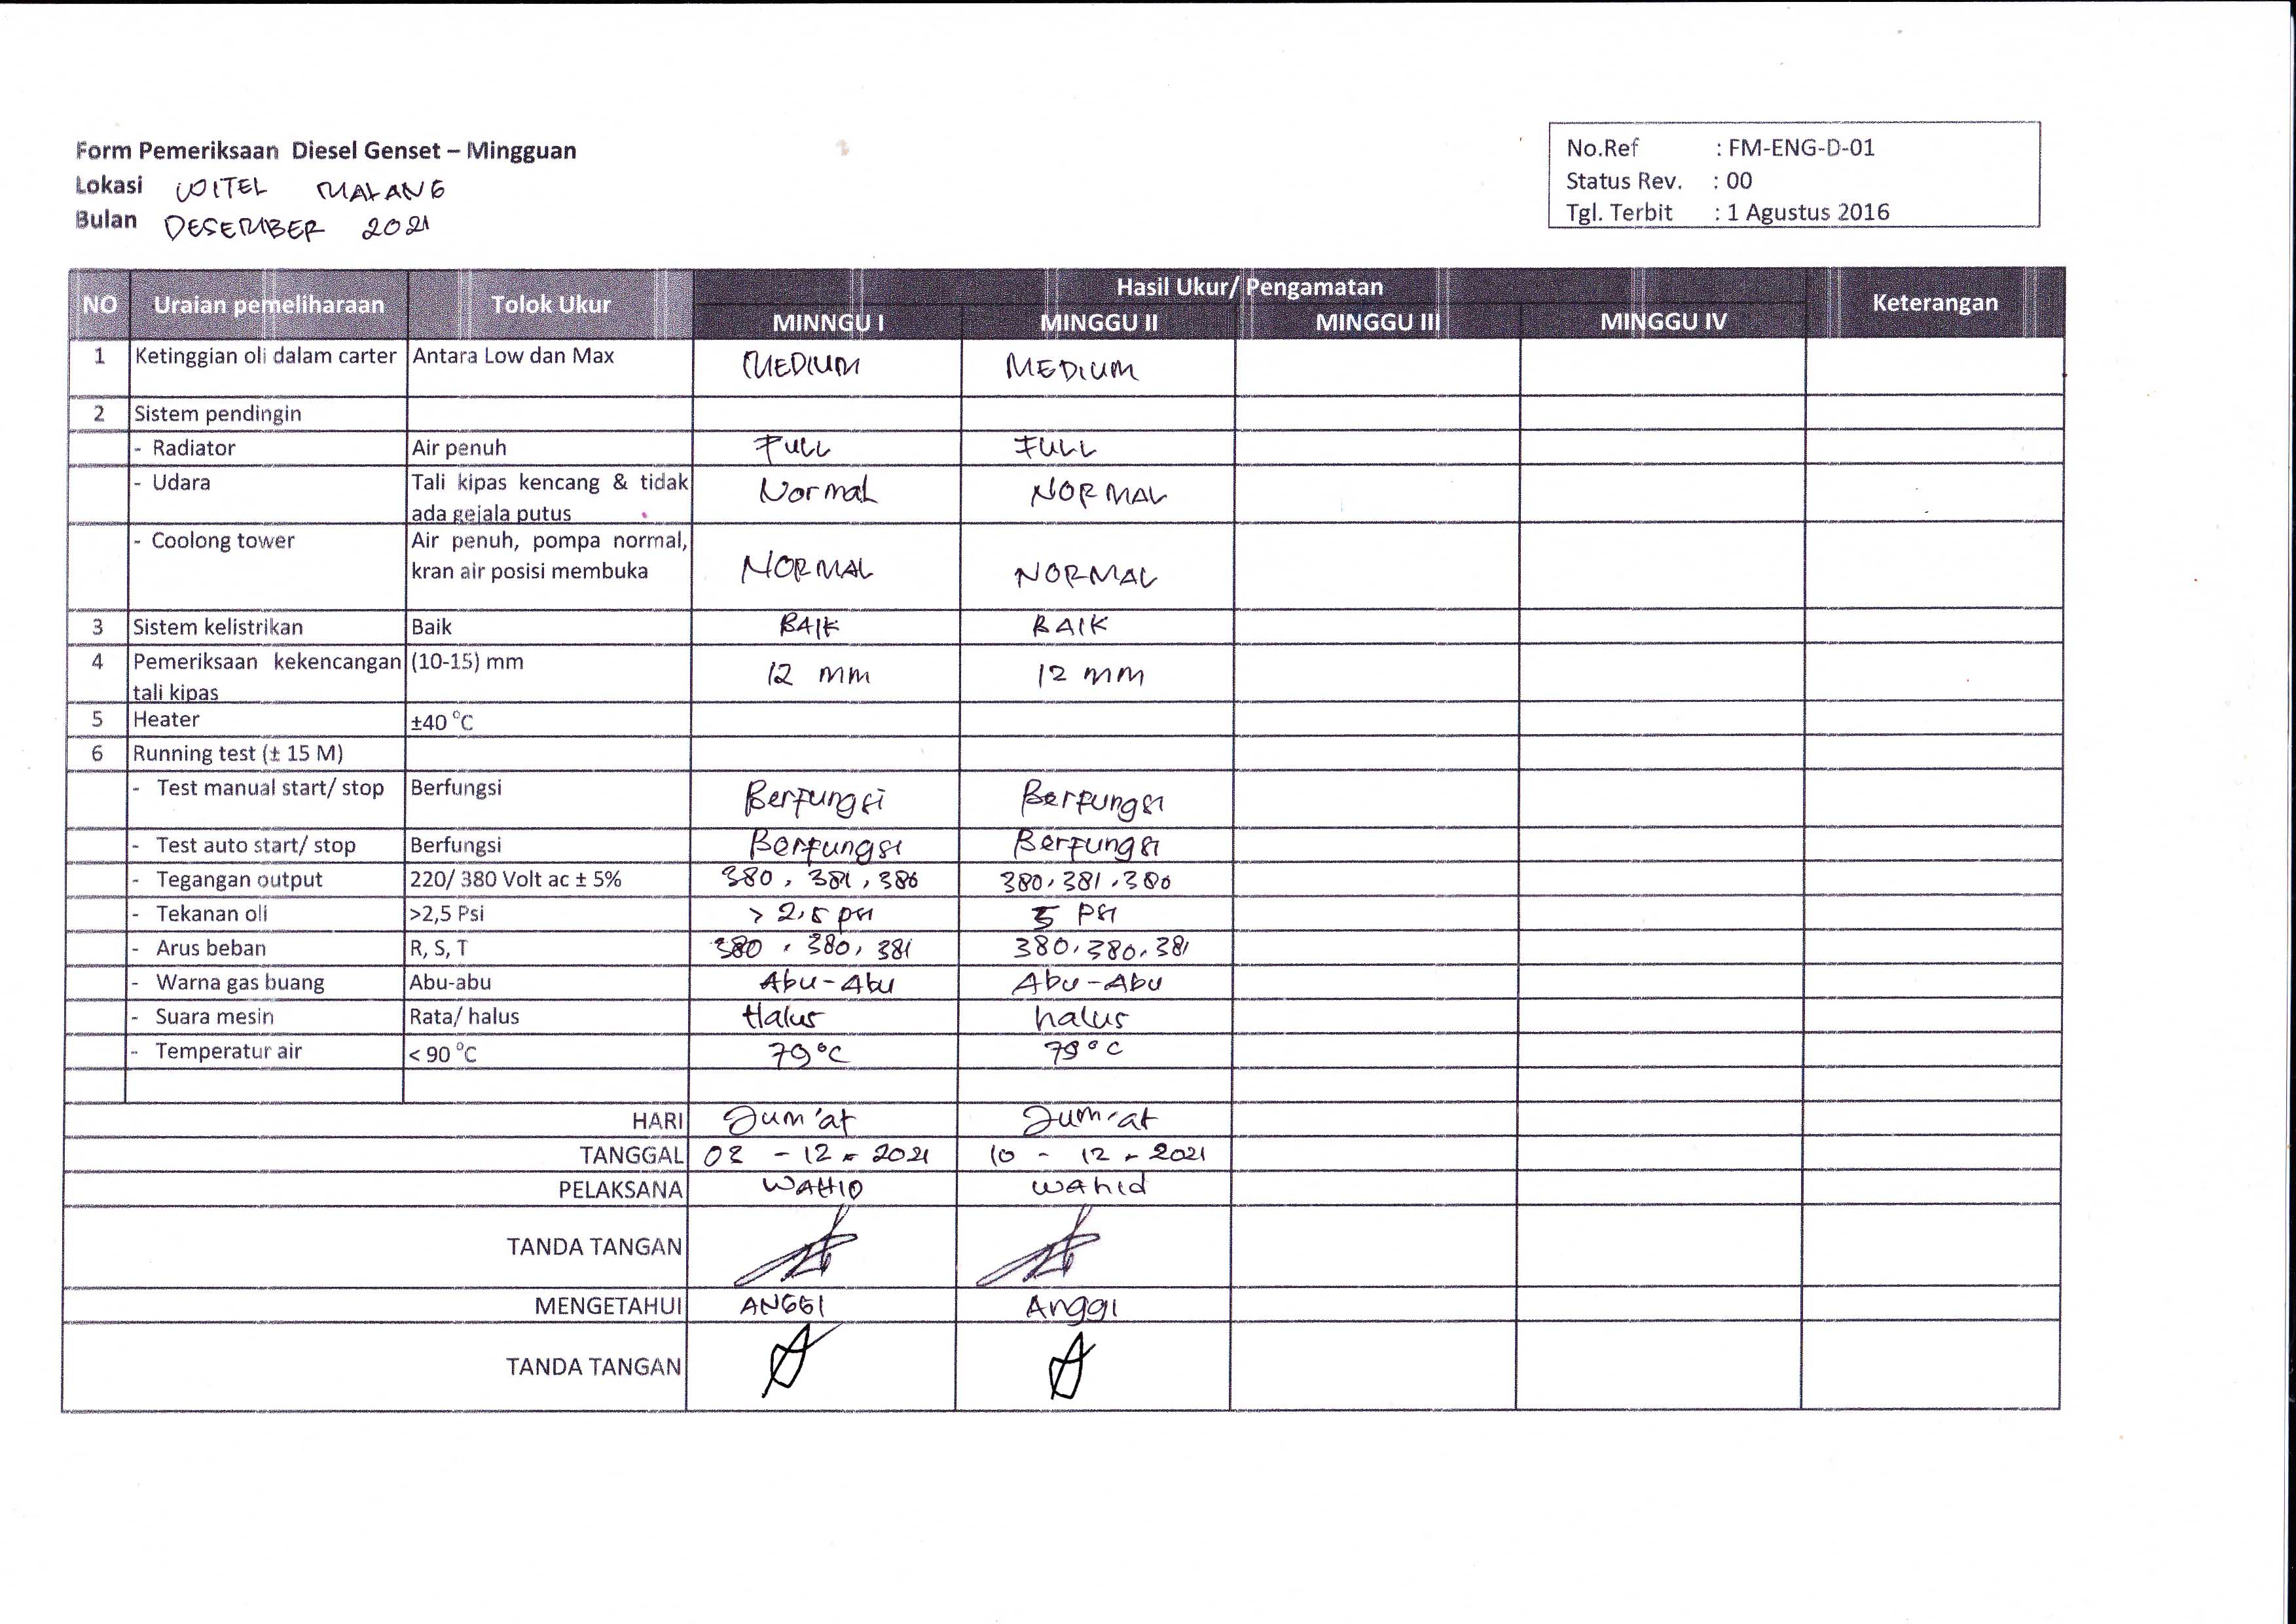 Form Pemeriksaan Diesel Genset – Mingguan
Lokasi WITEL MALANG
Bulan DESEMBER 2021
No.Ref : FM-ENG-D-01
Status Rev. : 00
Tgl. Terbit : 1 Agustus 2016
NO Uraian pemeliharaan Tolok Ukur Hasil Ukur/ Pengamatan Keterangan
MINNGU I MINGGU II MINGGU III MINGGU IV
1 Ketinggian oli dalam carter Antara Low dan Max MEDIUM MEDIUM
2 Sistem pendingin
- Radiator Air penuh FULL FULL
- Udara Tali kipas kencang & tidak Normal NORMAL
ada gejala putus
- Coolong tower Air penuh, pompa normal, NORMAL NORMAL
kran air posisi membuka
3 Sistem kelistrikan Baik BAIK BAIK
4 Pemeriksaan kekencangan (10-15) mm 12 mm 12 mm
tali kipas
5 Heater ±40 °C
6 Running test (± 15 M)
- Test manual start/ stop Berfungsi Berfungsi Berfungsi
- Test auto start/ stop Berfungsi Berfungsi Berfungsi
- Tegangan output 220/ 380 Volt ac ± 5% 380, 381, 380 380, 381, 380
- Tekanan oli >2,5 Psi > 2,5 psi 5 PSI
- Arus beban R, S, T 380, 380, 381 380, 380, 381
- Warna gas buang Abu-abu Abu-Abu Abu-Abu
- Suara mesin Rata/ halus Halus halus
- Temperatur air < 90 °C 79°C 79°C
HARI Jum'at Jum'at
TANGGAL - 12 - 2021 10 - 12 - 2021
PELAKSANA WAHID Wahid
TANDA TANGAN
MENGETAHUI ANGGI Anggi
TANDA TANGAN